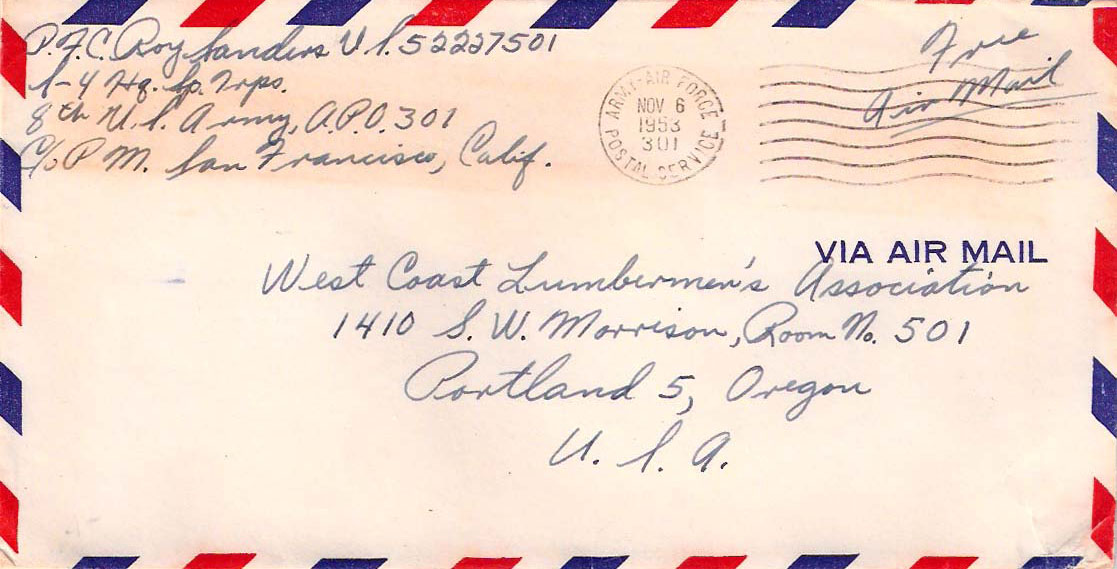 P.F.C. Roy Sanders U.S. 52227501
S-4 Hq. Sp. Trps.
8th U.S. Army, A.P.O. 301
C/o P.M. San Francisco, Calif.
ARMY-AIR FORCE
NOV 6
1953
301
POSTAL SERVICE
Free
Air Mail
VIA AIR MAIL
West Coast Lumbermen's Association
1410 S.W. Morrison, Room No. 501
Portland 5, Oregon
U.S.A.